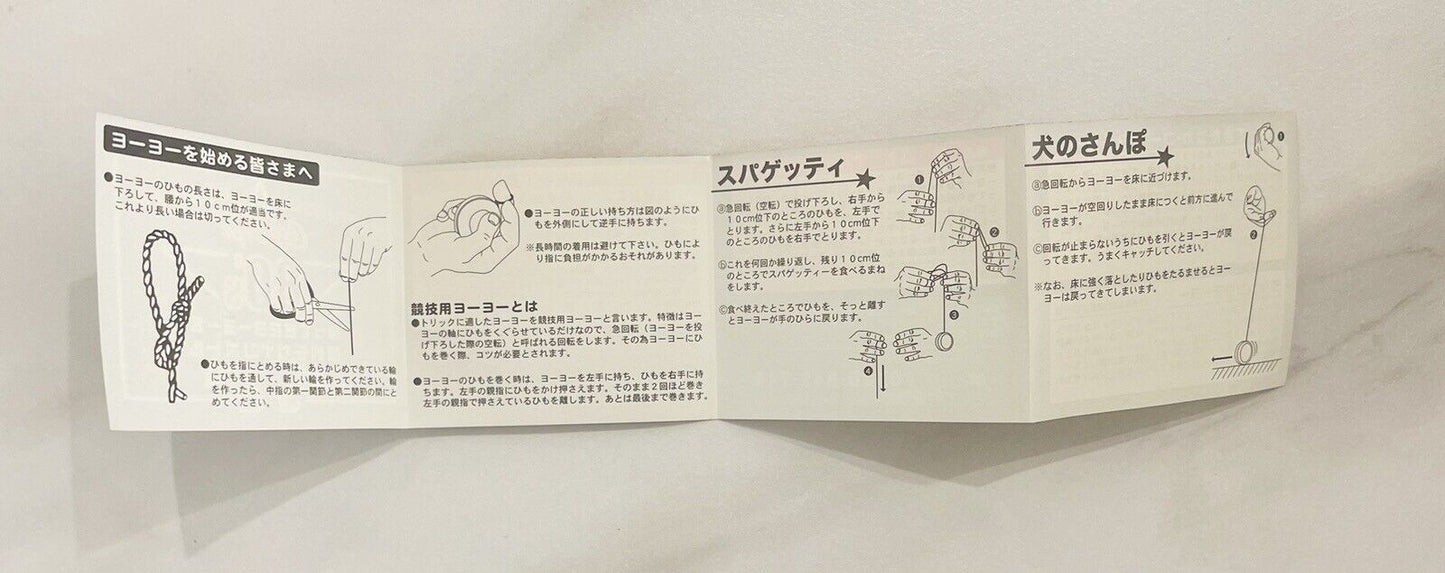 ヨーヨーを始める皆さまへ
●ヨーヨーのひもの長さは、ヨーヨーを床に
下ろして、腰から10cm位が適当です。
これより長い場合は切ってください。
●ひもを指にとめる時は、あらかじめできている輪
にひもを通して、新しい輪を作ってください。輪
を作ったら、中指の第一関節と第二関節の間にと
めてください。
●ヨーヨーの正しい持ち方は図のようにひ
もを外側にして逆手に持ちます。
※長時間の着用は避けて下さい。ひもによ
り指に負担がかかるおそれがあります。
競技用ヨーヨーとは
●トリックに適したヨーヨーを競技用ヨーヨーと言います。特徴はヨー
ヨーの軸にひもをくぐらせているだけなので、急回転（ヨーヨーを投
げ下ろした際の空転）と呼ばれる回転をします。その為ヨーヨーにひ
もを巻く際、コツが必要とされます。
●ヨーヨーのひもを巻く時は、ヨーヨーを左手に持ち、ひもを右手に持
ちます。左手の親指にひもをかけ押さえます。そのまま２回ほど巻き
左手の親指で押さえているひもを離します。あとは最後まで巻きます。
スパゲッティ★
ⓐ急回転（空転）で投げ下ろし、右手から
10cm位下のところのひもを、左手で
とります。さらに左手から10cm位下
のところのひもを右手でとります。
ⓑこれを何回か繰り返し、残り10cm位
のところでスパゲッティーを食べるまね
をします。
ⓒ食べ終えたところでひもを、そっと離す
とヨーヨーが手のひらに戻ります。
❶
❷
❸
❹
犬のさんぽ★
ⓐ急回転からヨーヨーを床に近づけます。
ⓑヨーヨーが空回りしたまま床につくと前方に進んで
行きます。
ⓒ回転が止まらないうちにひもを引くとヨーヨーが戻
ってきます。うまくキャッチしてください。
※なお、床に強く落としたりひもをたるませるとヨー
ヨーは戻ってきてしまいます。
❶
❷